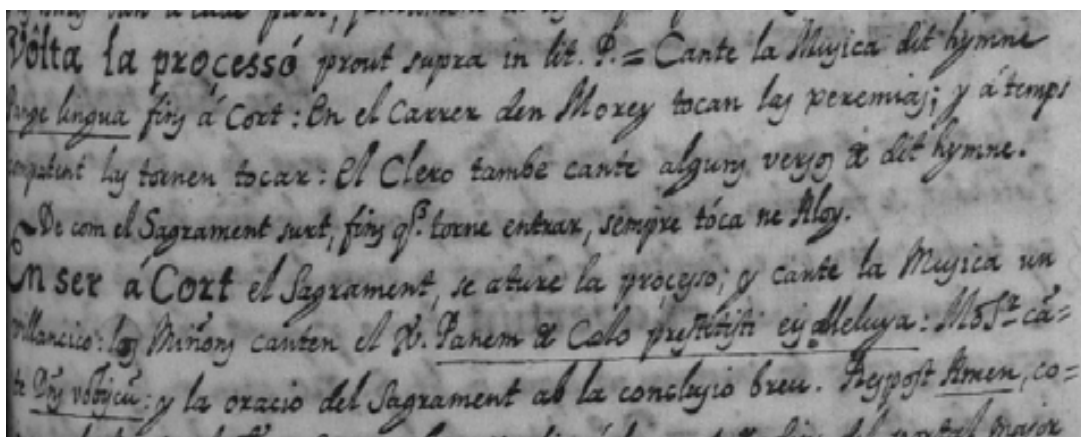 Vôlta la processó prout supra in lit. P. = Cante la Musica dit hymne
Pange lingua fins á Cort: En el Carrer den Morey tocan las xeremias; y á temps
competent las tornen tocar: El Clero tambe cante alguns versos de dit hymne.
De com el Sagrament surt, fins q.ᵉ torne entrar, sempre tóca ne Aloy.
En ser á Cort el Sagrament, se ature la processo; y cante la Musica un
villancico: los Miñons canten el V. Panem de Cælo prestitisti eis Alleluya: Mos.ʳ cã=
te Dñs vobiscũ: y la oracio del Sagrament ab la conclusio breu. Respost Amen, co=